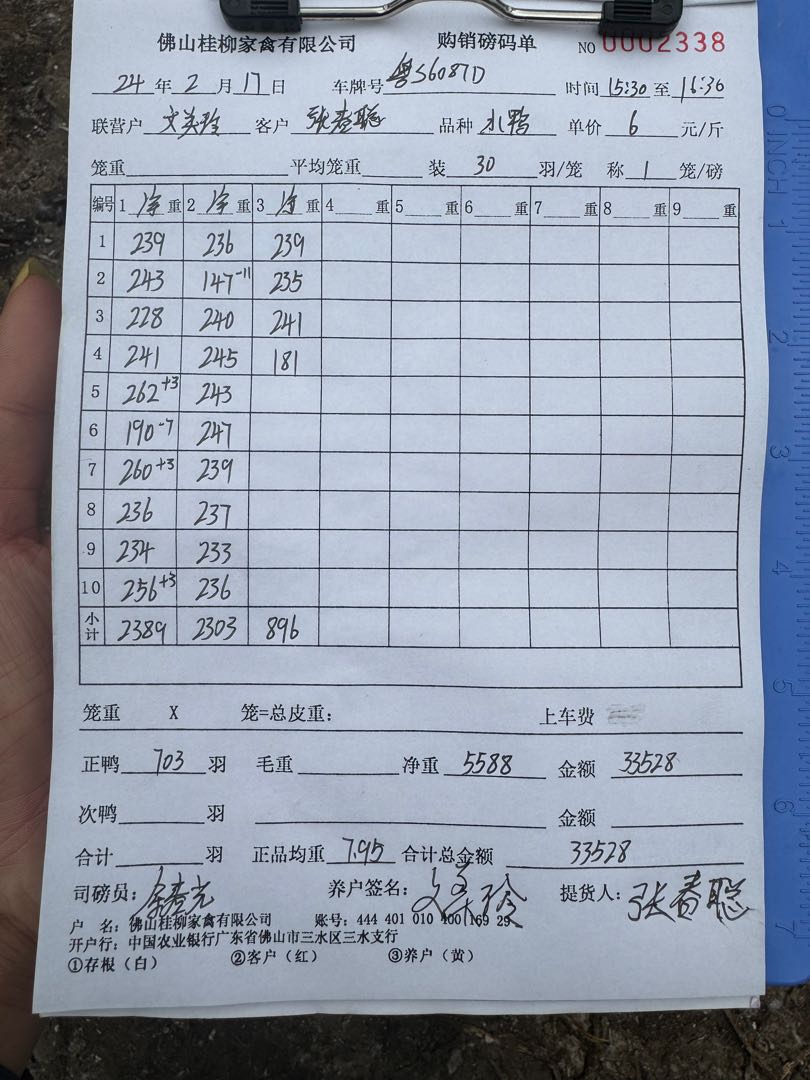 佛山桂柳家禽有限公司 购销磅码单 NO 0002338
24 年 2 月 17 日 车牌号 粤S6087D 时间 15:30 至 16:30
联营户 文英玲 客户 张春聪 品种 水鸭 单价 6 元/斤
笼重 平均笼重 装 30 羽/笼 称 1 笼/磅
编号 1 净 重 2 净 重 3 净 重 4 重 5 重 6 重 7 重 8 重 9 重
1 239 236 239
2 243 147-11 235
3 228 240 241
4 241 245 181
5 262+3 243
6 190-7 247
7 260+3 239
8 236 237
9 234 233
10 256+3 236
小计 2389 2303 896
笼重 X 笼=总皮重: 上车费
正鸭 703 羽 毛重 净重 5588 金额 33528
次鸭 羽 金额
合计 羽 正品均重 7.95 合计总金额 33528
司磅员: 养户签名: 提货人: 张春聪
户 名: 佛山桂柳家禽有限公司 账号: 444 401 010 400 169 29
开户行: 中国农业银行广东省佛山市三水区三水支行
①存根(白) ②客户(红) ③养户(黄)
0 INCH 1
2
3
4
5
6
7